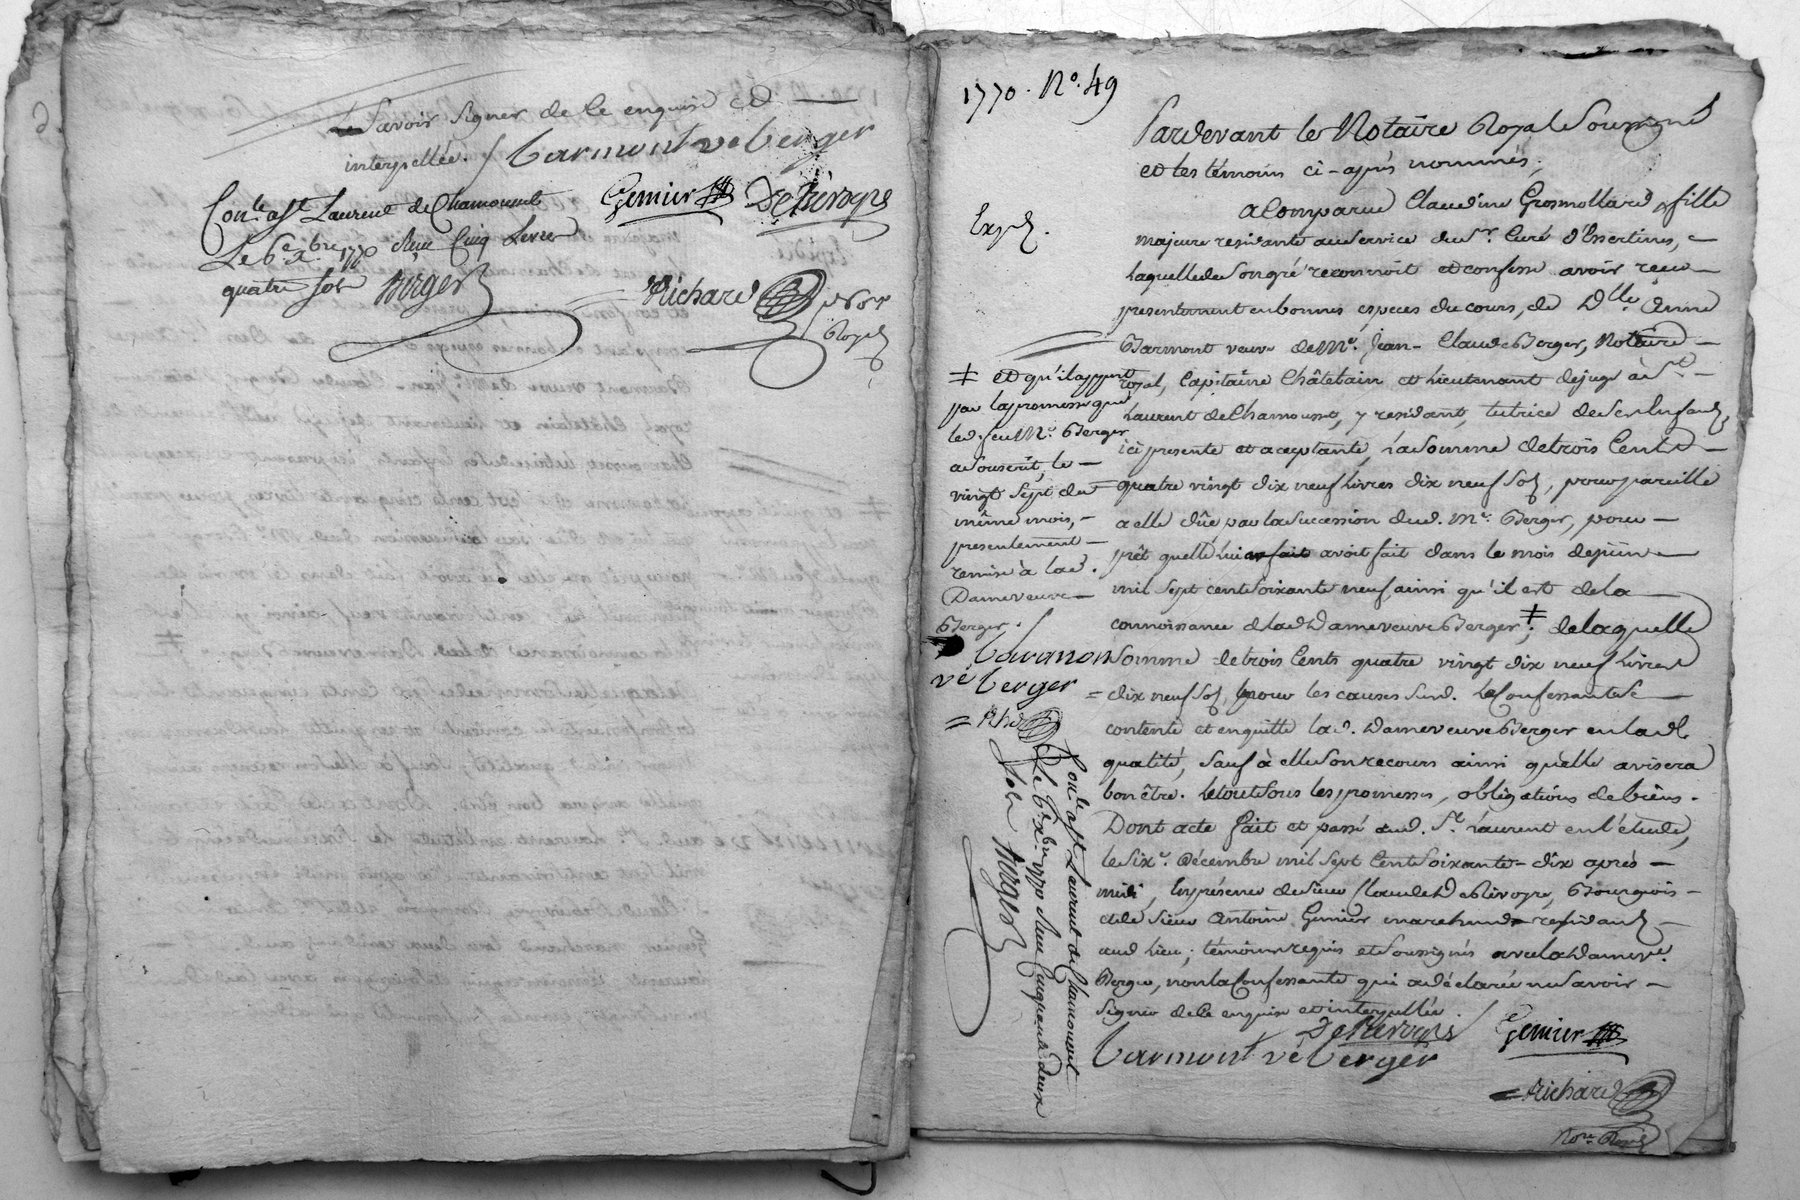 Savoir signer de ce enquise et
interpellée. / barmont ve berger
Genier Detirvoys
Con.le à St Laurent de Chamousset
Le 6.e Xbre 1770 Reçu Cinq Livres
quatre sols Berger
Richard no.re
Royal
1770. N.o 49
Pardevant le Notaire Royal Soussigné
et les témoins ci-après nommés;
Exp.
a Comparue Claudine Grosmollard fille
majeure residante au Service du S.r Curé d'Essertines,
laquelle de Son gré reconnoit et confesse avoir reçu
presentement en bonnes especes du cours, de D.lle Anne
Barmont veuve de M.e Jean-Claude Berger, Notaire
royal, Capitaine Châtelain et Lieutenant de juge à S.t
Laurent de Chamousset, y residant, tutrice de Ses Enfans,
ici presente et aceptante, La Somme de trois Cents
quatre vingt dix neuf Livres dix neuf Sols, pour pareille
a elle dûe par la Succession dud. M.e Berger, pour
prêt quelle lui a fait avoit fait dans le mois de juin
mil Sept cent Soixante neuf ainsi qu'il est de la
connoissance de lad. Dame veuve Berger ‡; de laquelle
Somme de trois Cents quatre vingt dix neuf Livres
dix neuf Sols, pour les causes Susd. La Confessante Se
contente et en quitte lad. Dame veuve Berger en lad.
qualité, Sauf à elle Son recours ainsi quelle avisera
bon être. Le tout Sous les promesses, obligations de biens.
Dont acte fait et passé aud. S.t Laurent en l'étude,
le Six.e Décembre mil Sept Cent Soixante-dix après
midi, En présence de Sieur Claude Detirvoys, Bourgeois
et de Sieur Antoine Genier marchand residants
aud. Lieu; témoins requis et Soussignés avec la Dame v.e
Berger, non la Confessante qui a déclarée ne Savoir
Signer de ce enquise et interpellée.
Detirvoys Genier
barmont vé berger
Richard
No.re Royal
‡ et qu'il appert
par la promesse que
led. feu M.e Berger
a Souscrit, le
vingt Sept du
même mois,
presentement
remise à lad.
Dame veuve
Berger.
barmon
vé berger
= Rhd
Con.le à St Laurent de Chamousset
Le 6.e Xbre 1770 Reçu Cinquante deux
Sols Berger